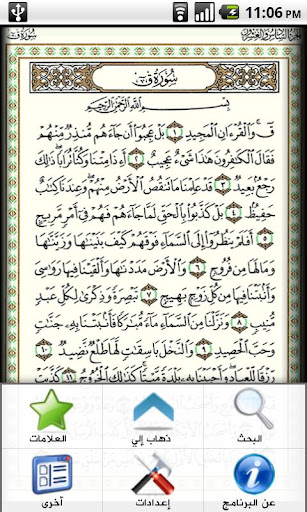 11:06 PM
الجزء السادس والعشرون سورة ق
سُورَةُ ق
بِسْمِ اللَّهِ الرَّحْمَٰنِ الرَّحِيمِ
قٓ وَالْقُرْءَانِ الْمَجِيدِ ١ بَلْ عَجِبُوٓا أَن جَآءَهُم مُّنذِرٌ مِّنْهُمْ
فَقَالَ الْكَٰفِرُونَ هَٰذَا شَىْءٌ عَجِيبٌ ٢ أَءِذَا مِتْنَا وَكُنَّا تُرَابًا ذَٰلِكَ
رَجْعٌۢ بَعِيدٌ ٣ قَدْ عَلِمْنَا مَا تَنقُصُ الْأَرْضُ مِنْهُمْ وَعِندَنَا كِتَٰبٌ
حَفِيظٌۢ ٤ بَلْ كَذَّبُوا بِالْحَقِّ لَمَّا جَآءَهُمْ فَهُمْ فِىٓ أَمْرٍ مَّرِيجٍ
٥ أَفَلَمْ يَنظُرُوٓا إِلَى السَّمَآءِ فَوْقَهُمْ كَيْفَ بَنَيْنَٰهَا وَزَيَّنَّٰهَا
وَمَا لَهَا مِن فُرُوجٍ ٦ وَالْأَرْضَ مَدَدْنَٰهَا وَأَلْقَيْنَا فِيهَا رَوَٰسِىَ
وَأَنۢبَتْنَا فِيهَا مِن كُلِّ زَوْجٍۭ بَهِيجٍ ٧ تَبْصِرَةً وَذِكْرَىٰ لِكُلِّ عَبْدٍ
مُّنِيبٍ ٨ وَنَزَّلْنَا مِنَ السَّمَآءِ مَآءً مُّبَٰرَكًا فَأَنۢبَتْنَا بِهِۦ جَنَّٰتٍ
وَحَبَّ الْحَصِيدِ ٩ وَالنَّخْلَ بَاسِقَٰتٍ لَّهَا طَلْعٌ نَّضِيدٌ ١٠
رِّزْقًا لِّلْعِبَادِ وَأَحْيَيْنَا بِهِۦ بَلْدَةً مَّيْتًا كَذَٰلِكَ الْخُرُوجُ ١١ كَذَّبَتْ
البحث
ذهاب إلي
العلامات
عن البرنامج
إعدادات
أخرى